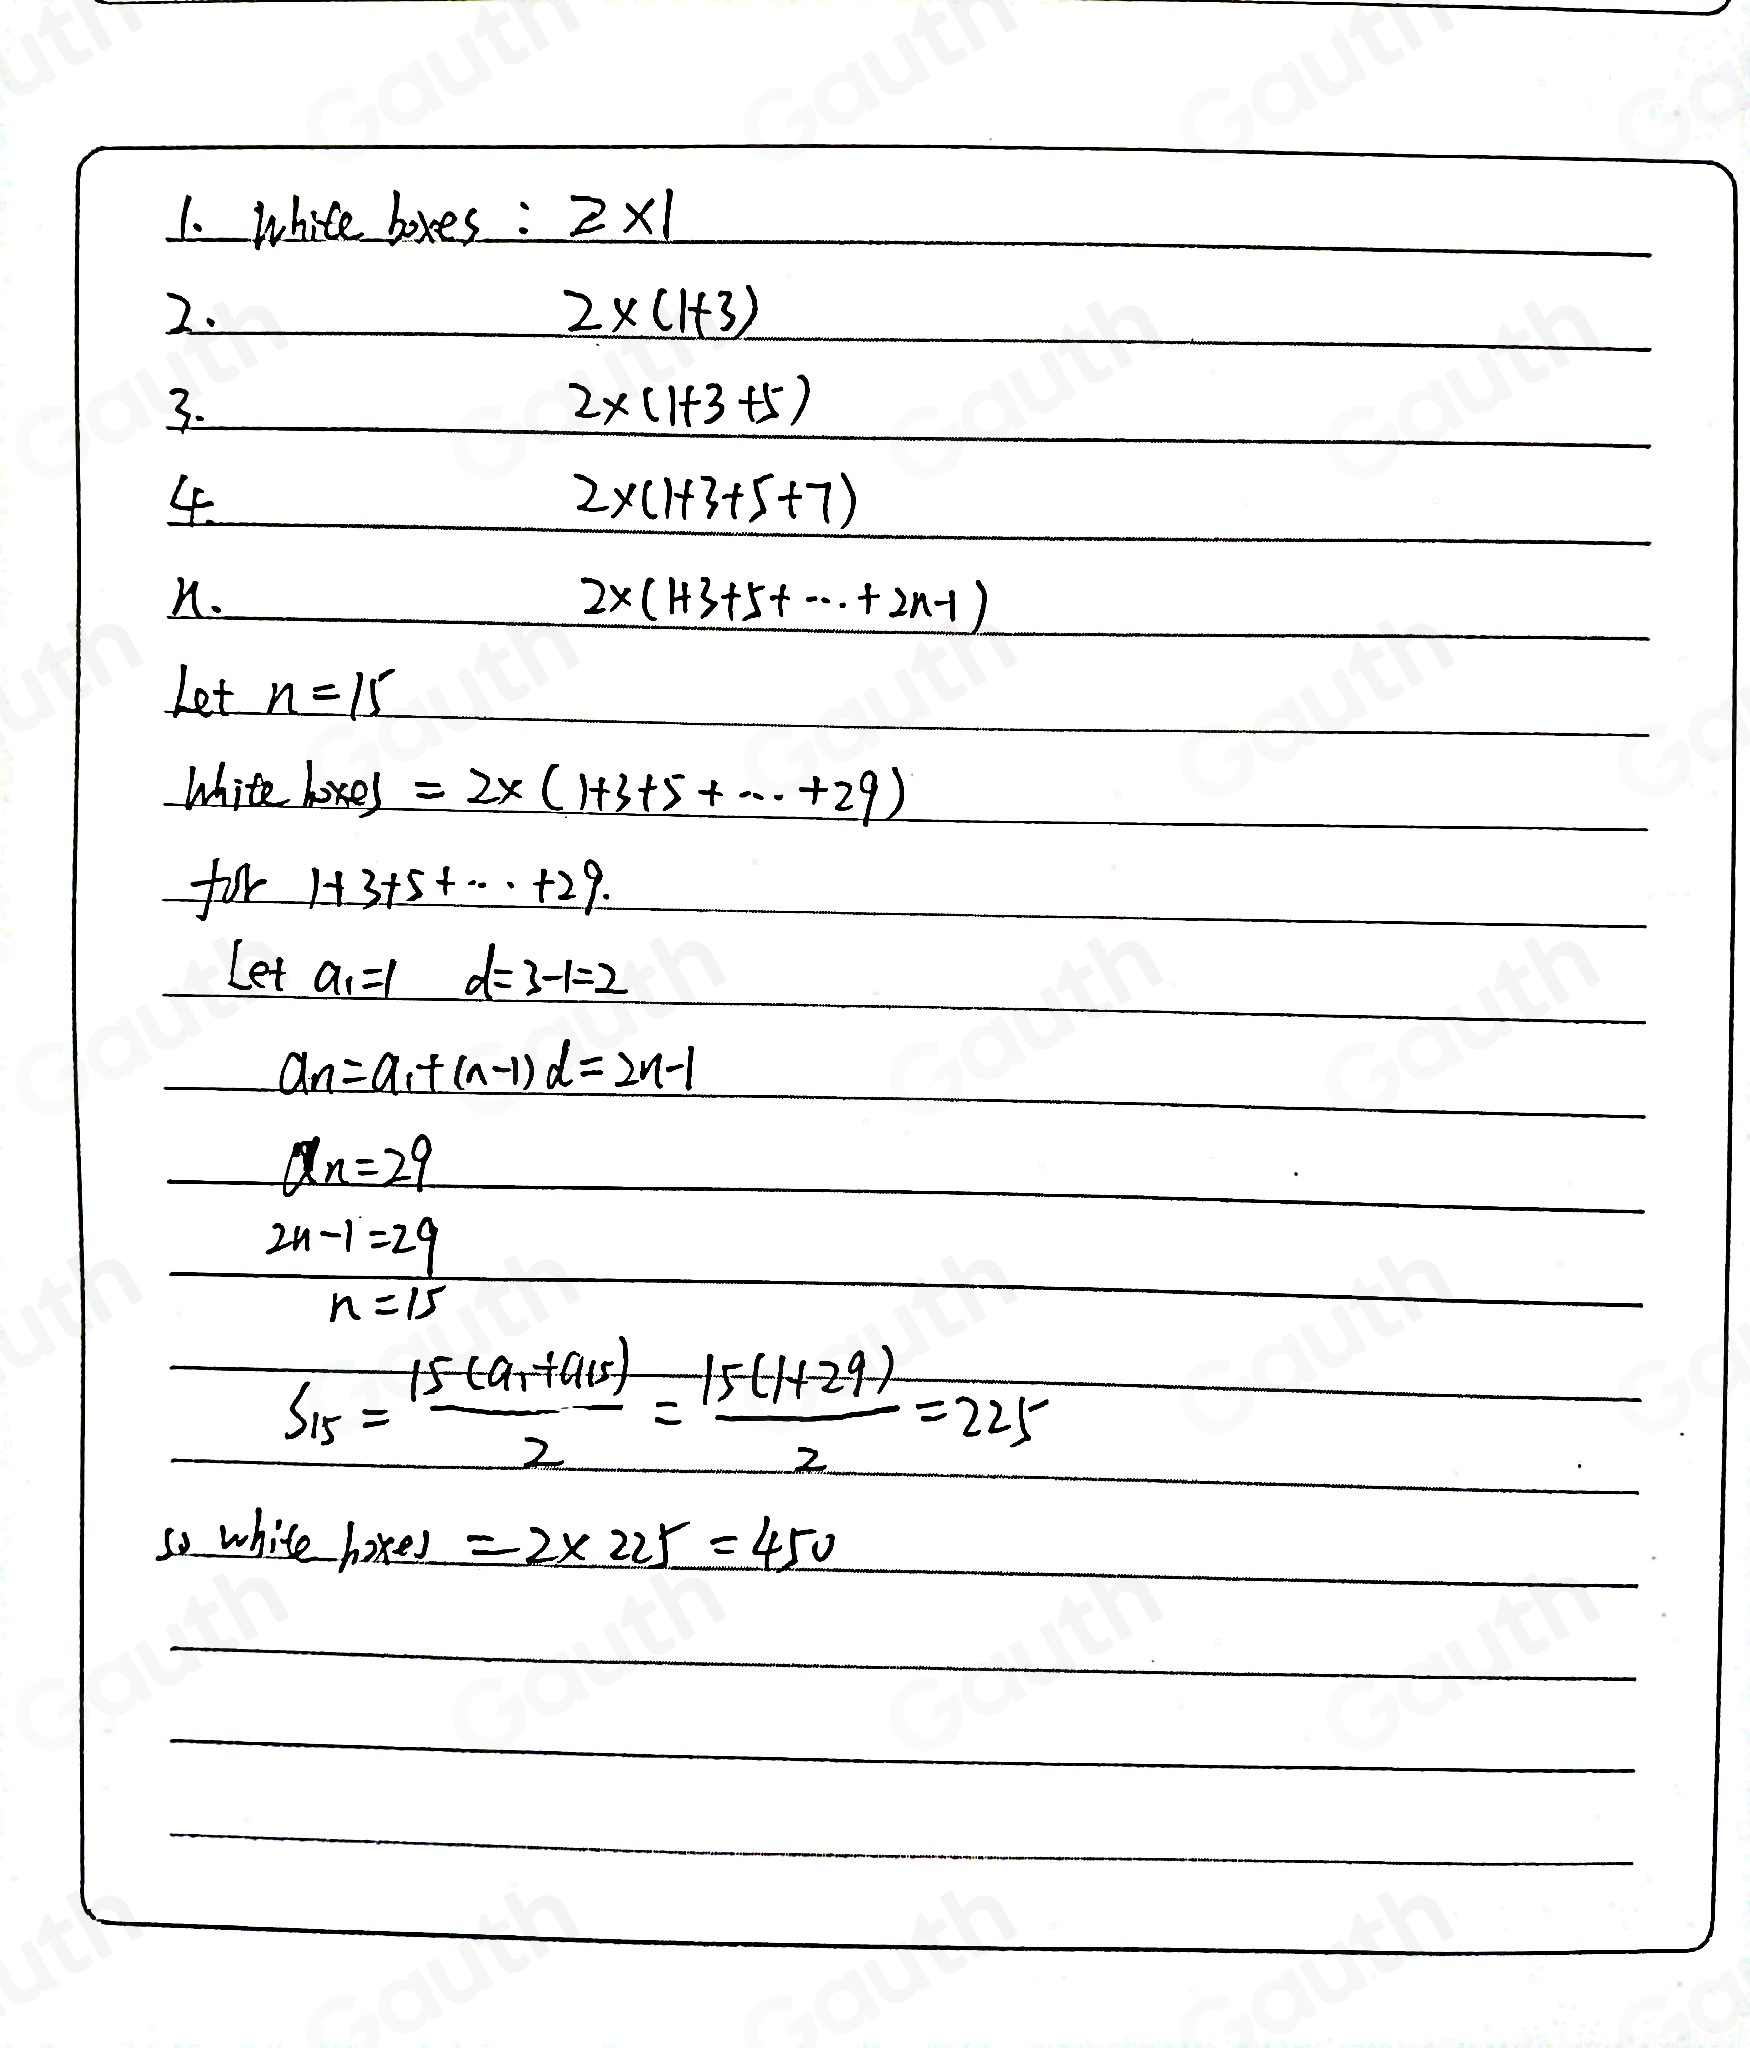 1. White boxes : 2×1
2. 2×(1+3)
3. 2×(1+3+5)
4. 2×(1+3+5+7)
n. 2×(1+3+5+⋯+2n-1)
Let n=15
White boxes = 2×(1+3+5+⋯+29)
for 1+3+5+⋯+29.
Let a₁=1 d=3-1=2
an=a₁+(n-1)d=2n-1
an=29
2n-1=29
n=15
S₁₅ = 15(a₁+a₁₅)/2 = 15(1+29)/2 = 225
so white boxes = 2×225 = 450
Gauth